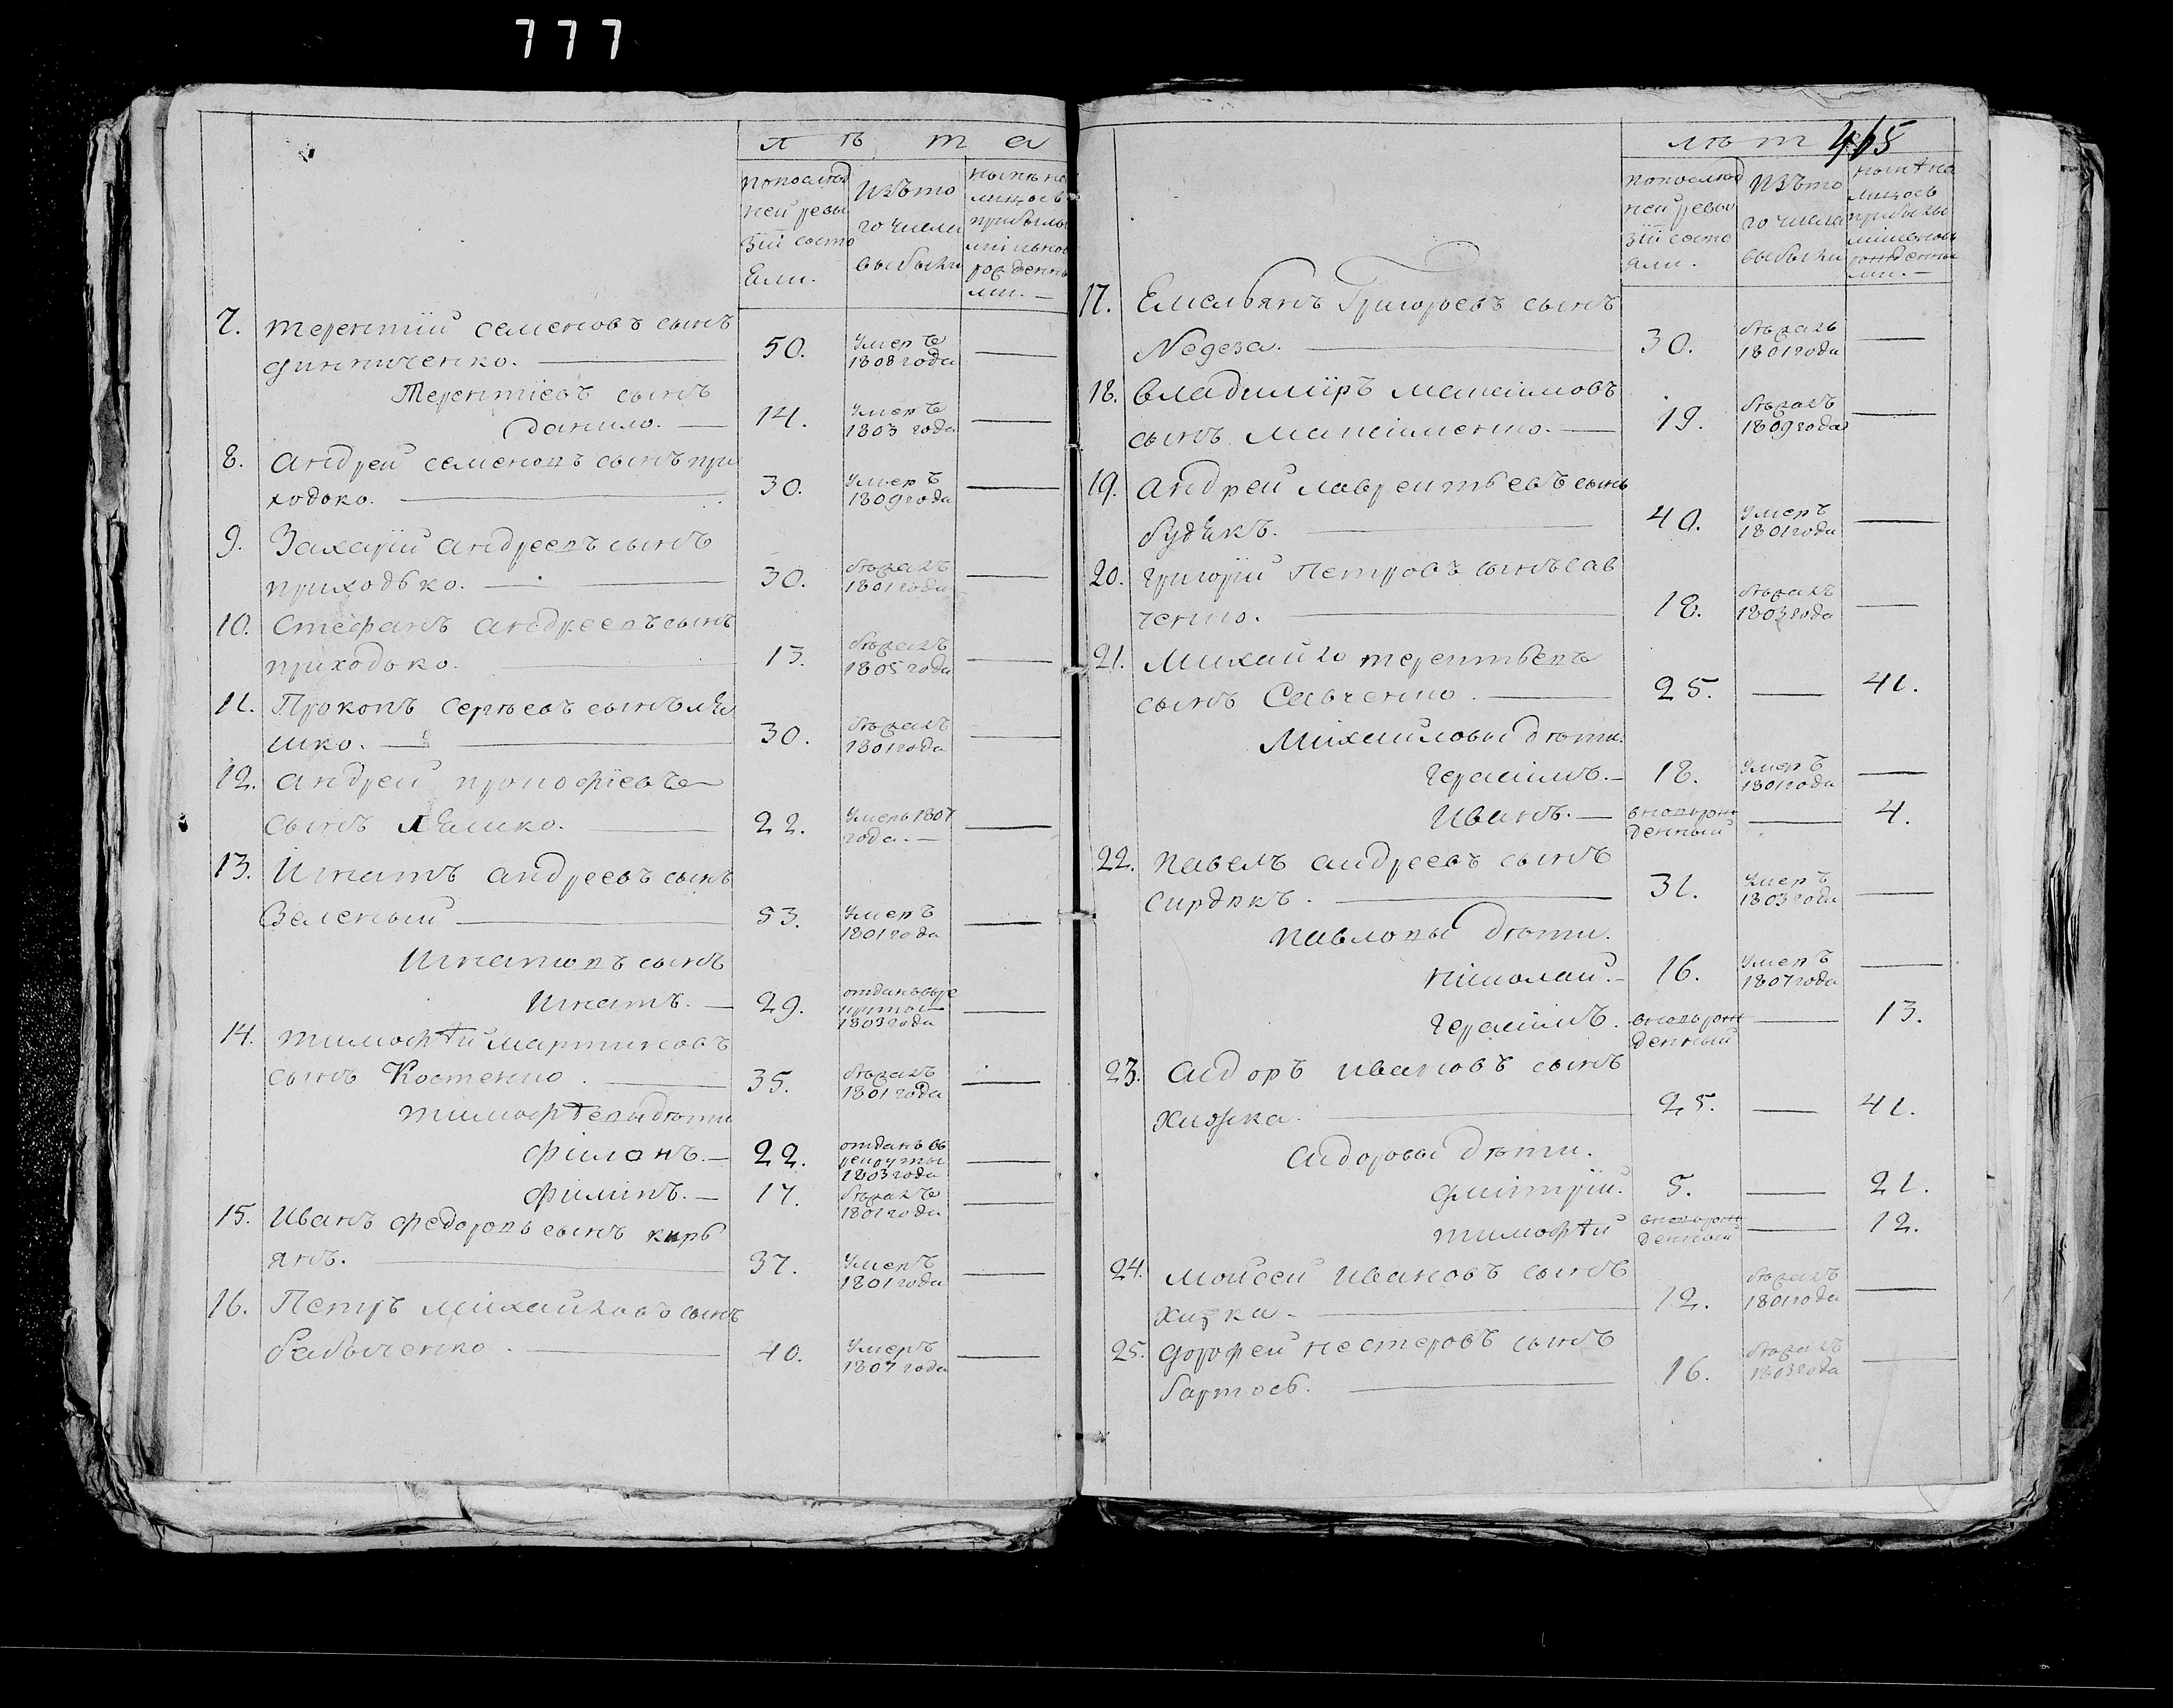 777
лѣта
по послед
ней ревы
зіи состо
яли.
изъ то
го числа
выбыли
нынѣ на
лицо съ
прибылы
ми и внов
рожденны
ми. —
7. Терентий Семеновъ сынъ
50. умерѣ
1808 года
Терентіевъ сынъ
Данило. — 14. умерѣ
1803 года
8. Андрей Семеновъ сынъ при
ходько. 30. умеръ
1809 года
9. Захарій Андреевъ сынъ
приходько. — 30. бѣжалъ
1801 года
10. Стефанъ Андреевъ сынъ
приходько. 13. бѣжалъ
1805 года
11. Прокопъ Сергѣевъ сынъ
шко. — 30. бѣжалъ
1801 года
12. Андрей
сынъ 22. умеръ 1807
года. —
13. Игнатъ Андреевъ сынъ
Зеленый 53. умеръ
1801 года
Игнатовъ сынъ
Игнатъ. — 29. отданъ въ ре
круты
1803 года
14. Тимофѣй Мартиновъ
сынъ Костенко. 35. бѣжалъ
1801 года
Тимофѣевы дѣти
Филонъ. — 22. отданъ въ
рекруты
1803 года
Филипъ. — 17. бѣжалъ
1801 года
15. Иванъ Федоровъ сынъ кирь
янъ. 37. умеръ
1801 года
16. Петръ Михайловъ сынъ
Рабыченко. 40. умеръ
1807 года
лѣт
465
по послед
ней ревы
зіи состо
яли.
изъ то
го числа
выбыли
нынѣ на
лицо съ
прибылы
ми и вновь
рожденны
ми. —
17. Емельянъ Григорьевъ сынъ
30. бѣжалъ
1801 года
18. Владимиръ Максимовъ
сынъ Максименко. — 19. бѣжалъ
1809 года
19. Андрей Лаврентьевъ сынъ
40. умеръ
1801 года
20. Григорій Петровъ сынъ Сав
ченко. 18. бѣжалъ
1803 года
21. Михайло Терентьевъ
сынъ Савченко. 25. — 41.
Михайловы дѣти.
Герасимъ. — 18. умеръ
1801 года
Иванъ. — вновь рож
денный — 4.
22. Павелъ Андреевъ сынъ
31. умеръ
1803 года
Павловы дѣти.
Николай. — 16. умеръ
1807 года
Герасимъ. вновь рож
денный — 13.
23. Сидоръ Ивановъ сынъ
Хижка. 25. — 41.
Сидоровы дѣти.
Дмитрий. 5. — 21.
Тимофѣй вновь рож
денный — 12.
24. Мойсей Ивановъ сынъ
Хижка. 12. бѣжалъ
1801 года
25. Дорофей Нестеровъ сынъ
бартось. 16. бѣжалъ
1803 года